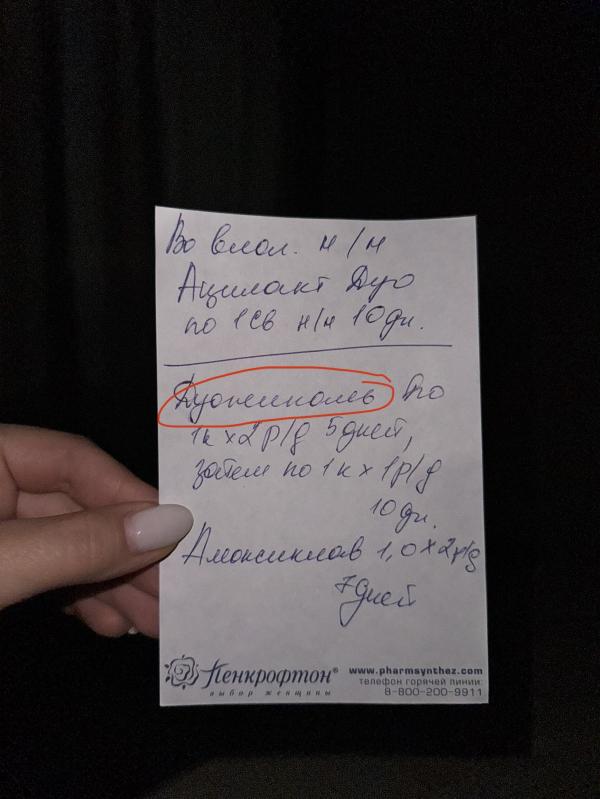 Во влаг. н/н
Ацилакт Дуо
по 1 св н/н 10 дн.
Дуожиналь По
1к x 2 р/д 5 дней,
затем по 1 к x 1 р/д
10 дн.
Амоксиклав 1,0 x 2 р/д
7 дней
Пенкрофтон®
выбор женщины
www.pharmsynthez.com
телефон горячей линии:
8-800-200-9911